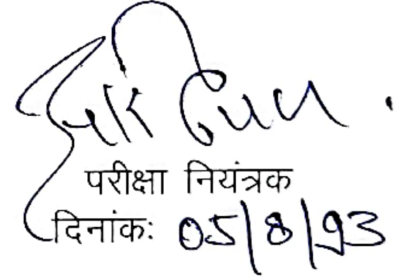 परीक्षा नियंत्रक
दिनांक: 05/8/93